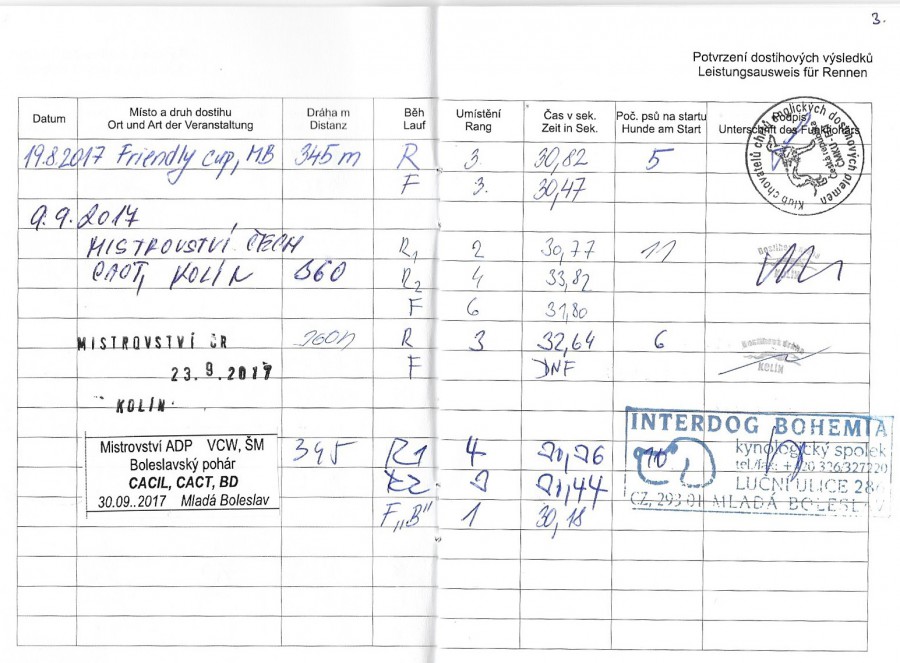 3.
Potvrzení dostihových výsledků
Leistungsausweis für Rennen
Datum Místo a druh dostihu Dráha m Běh Umístění Čas v sek. Poč. psů na startu Podpis
Ort und Art der Veranstaltung Distanz Lauf Rang Zeit in Sek. Hunde am Start Unterschrift des Funktionärs
Klub chovatelů chrtů anglických dostihových plemen
19.8.2017 Friendly cup, MB 345 m R 3. 30,82 5
F 3. 30,47
9.9.2017
MISTROVSTVÍ ČECH R1 2 30,77 11
CACT, KOLÍN 360 R2 4 33,82
KOLÍN
F 6 31,80
MISTROVSTVÍ ČR 360m R 3 32,64 6
Dostihová dráha
KOLÍN
23.9.2017 F DNF
KOLÍN
Mistrovství ADP VCW, ŠM
Boleslavský pohár
CACIL, CACT, BD
30.09..2017 Mladá Boleslav
345 R1 4
R2
F "B" 1 30,18
INTERDOG BOHEMIA
kynologický spolek
tel/fax: + 420 326/327220
LUČNÍ ULICE
CZ, 293 01 MLADÁ BOLESLAV